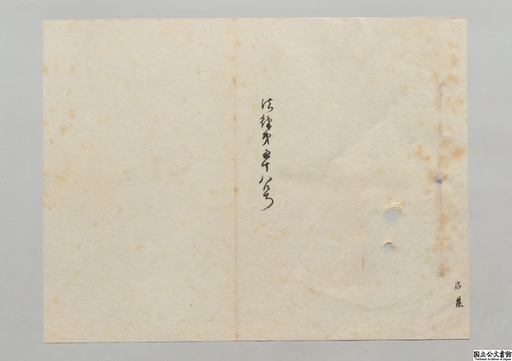 法律第五十八号
国立公文書館
National Archives of Japan